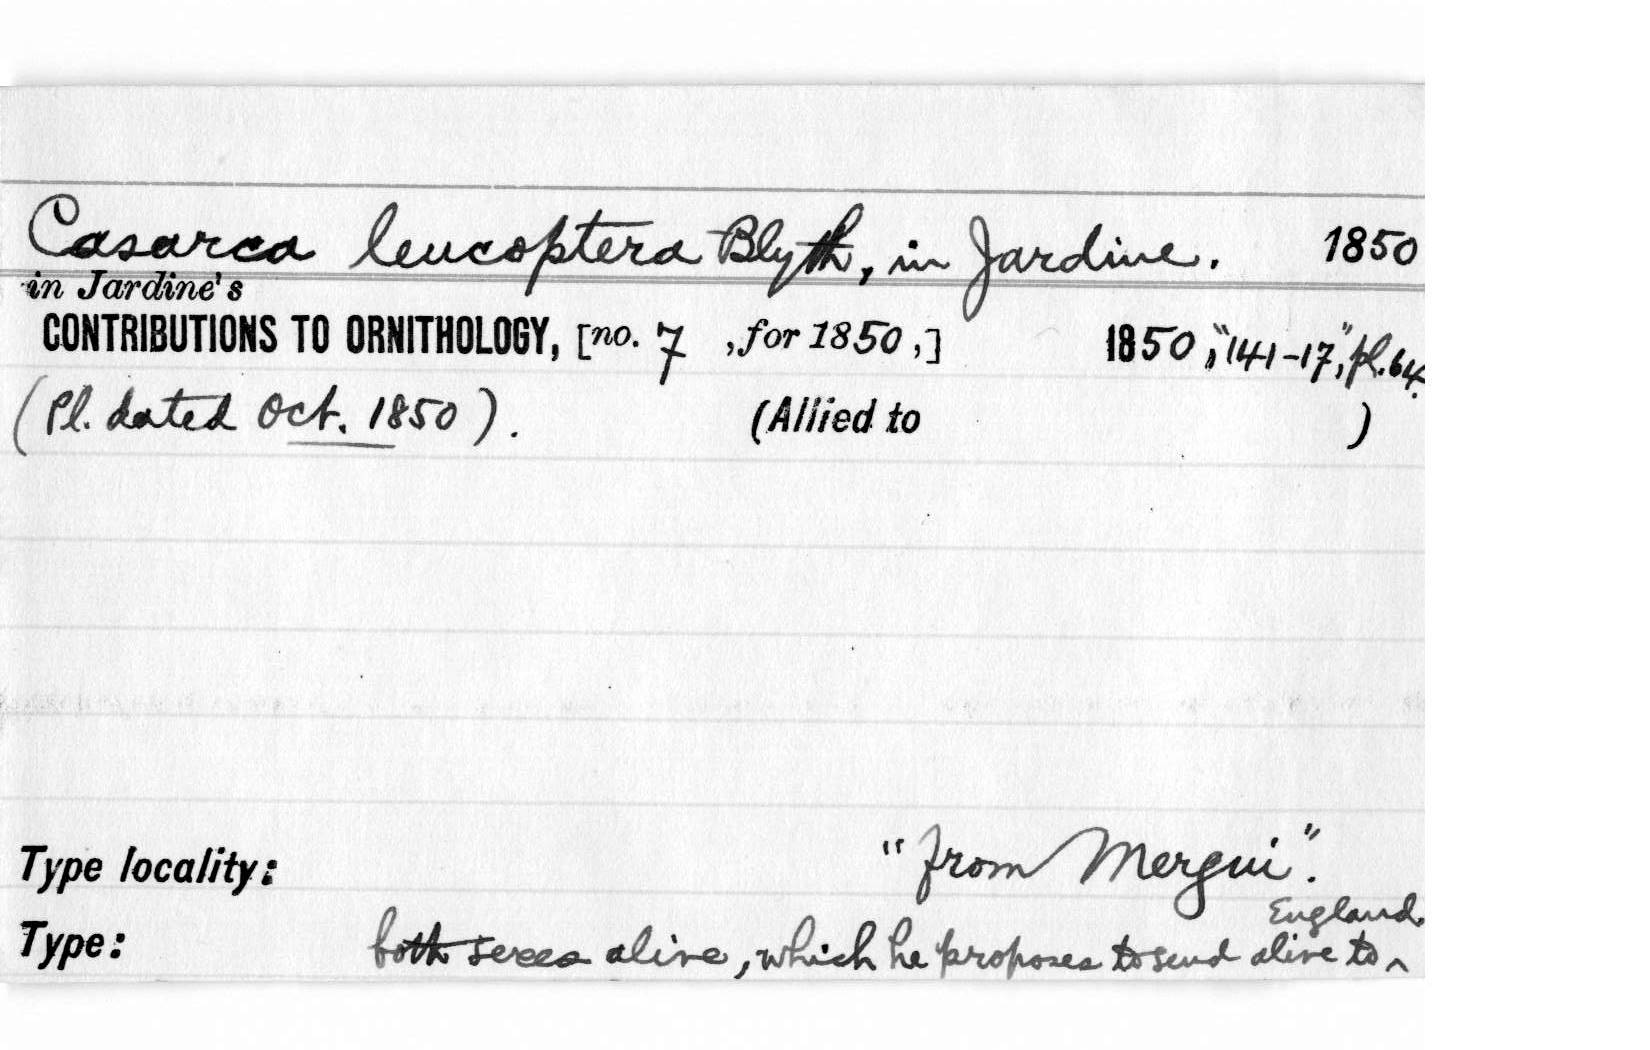 Casarca leucoptera Blyth, in Jardine. 1850
in Jardine's
CONTRIBUTIONS TO ORNITHOLOGY, [no. 7 , for 1850 ,] 1850, "141-17", pl. 64.
(Pl. dated Oct. 1850). (Allied to )
Type locality: "from Mergui".
England.
Type: both sexes alive, which he proposes to send alive to ^